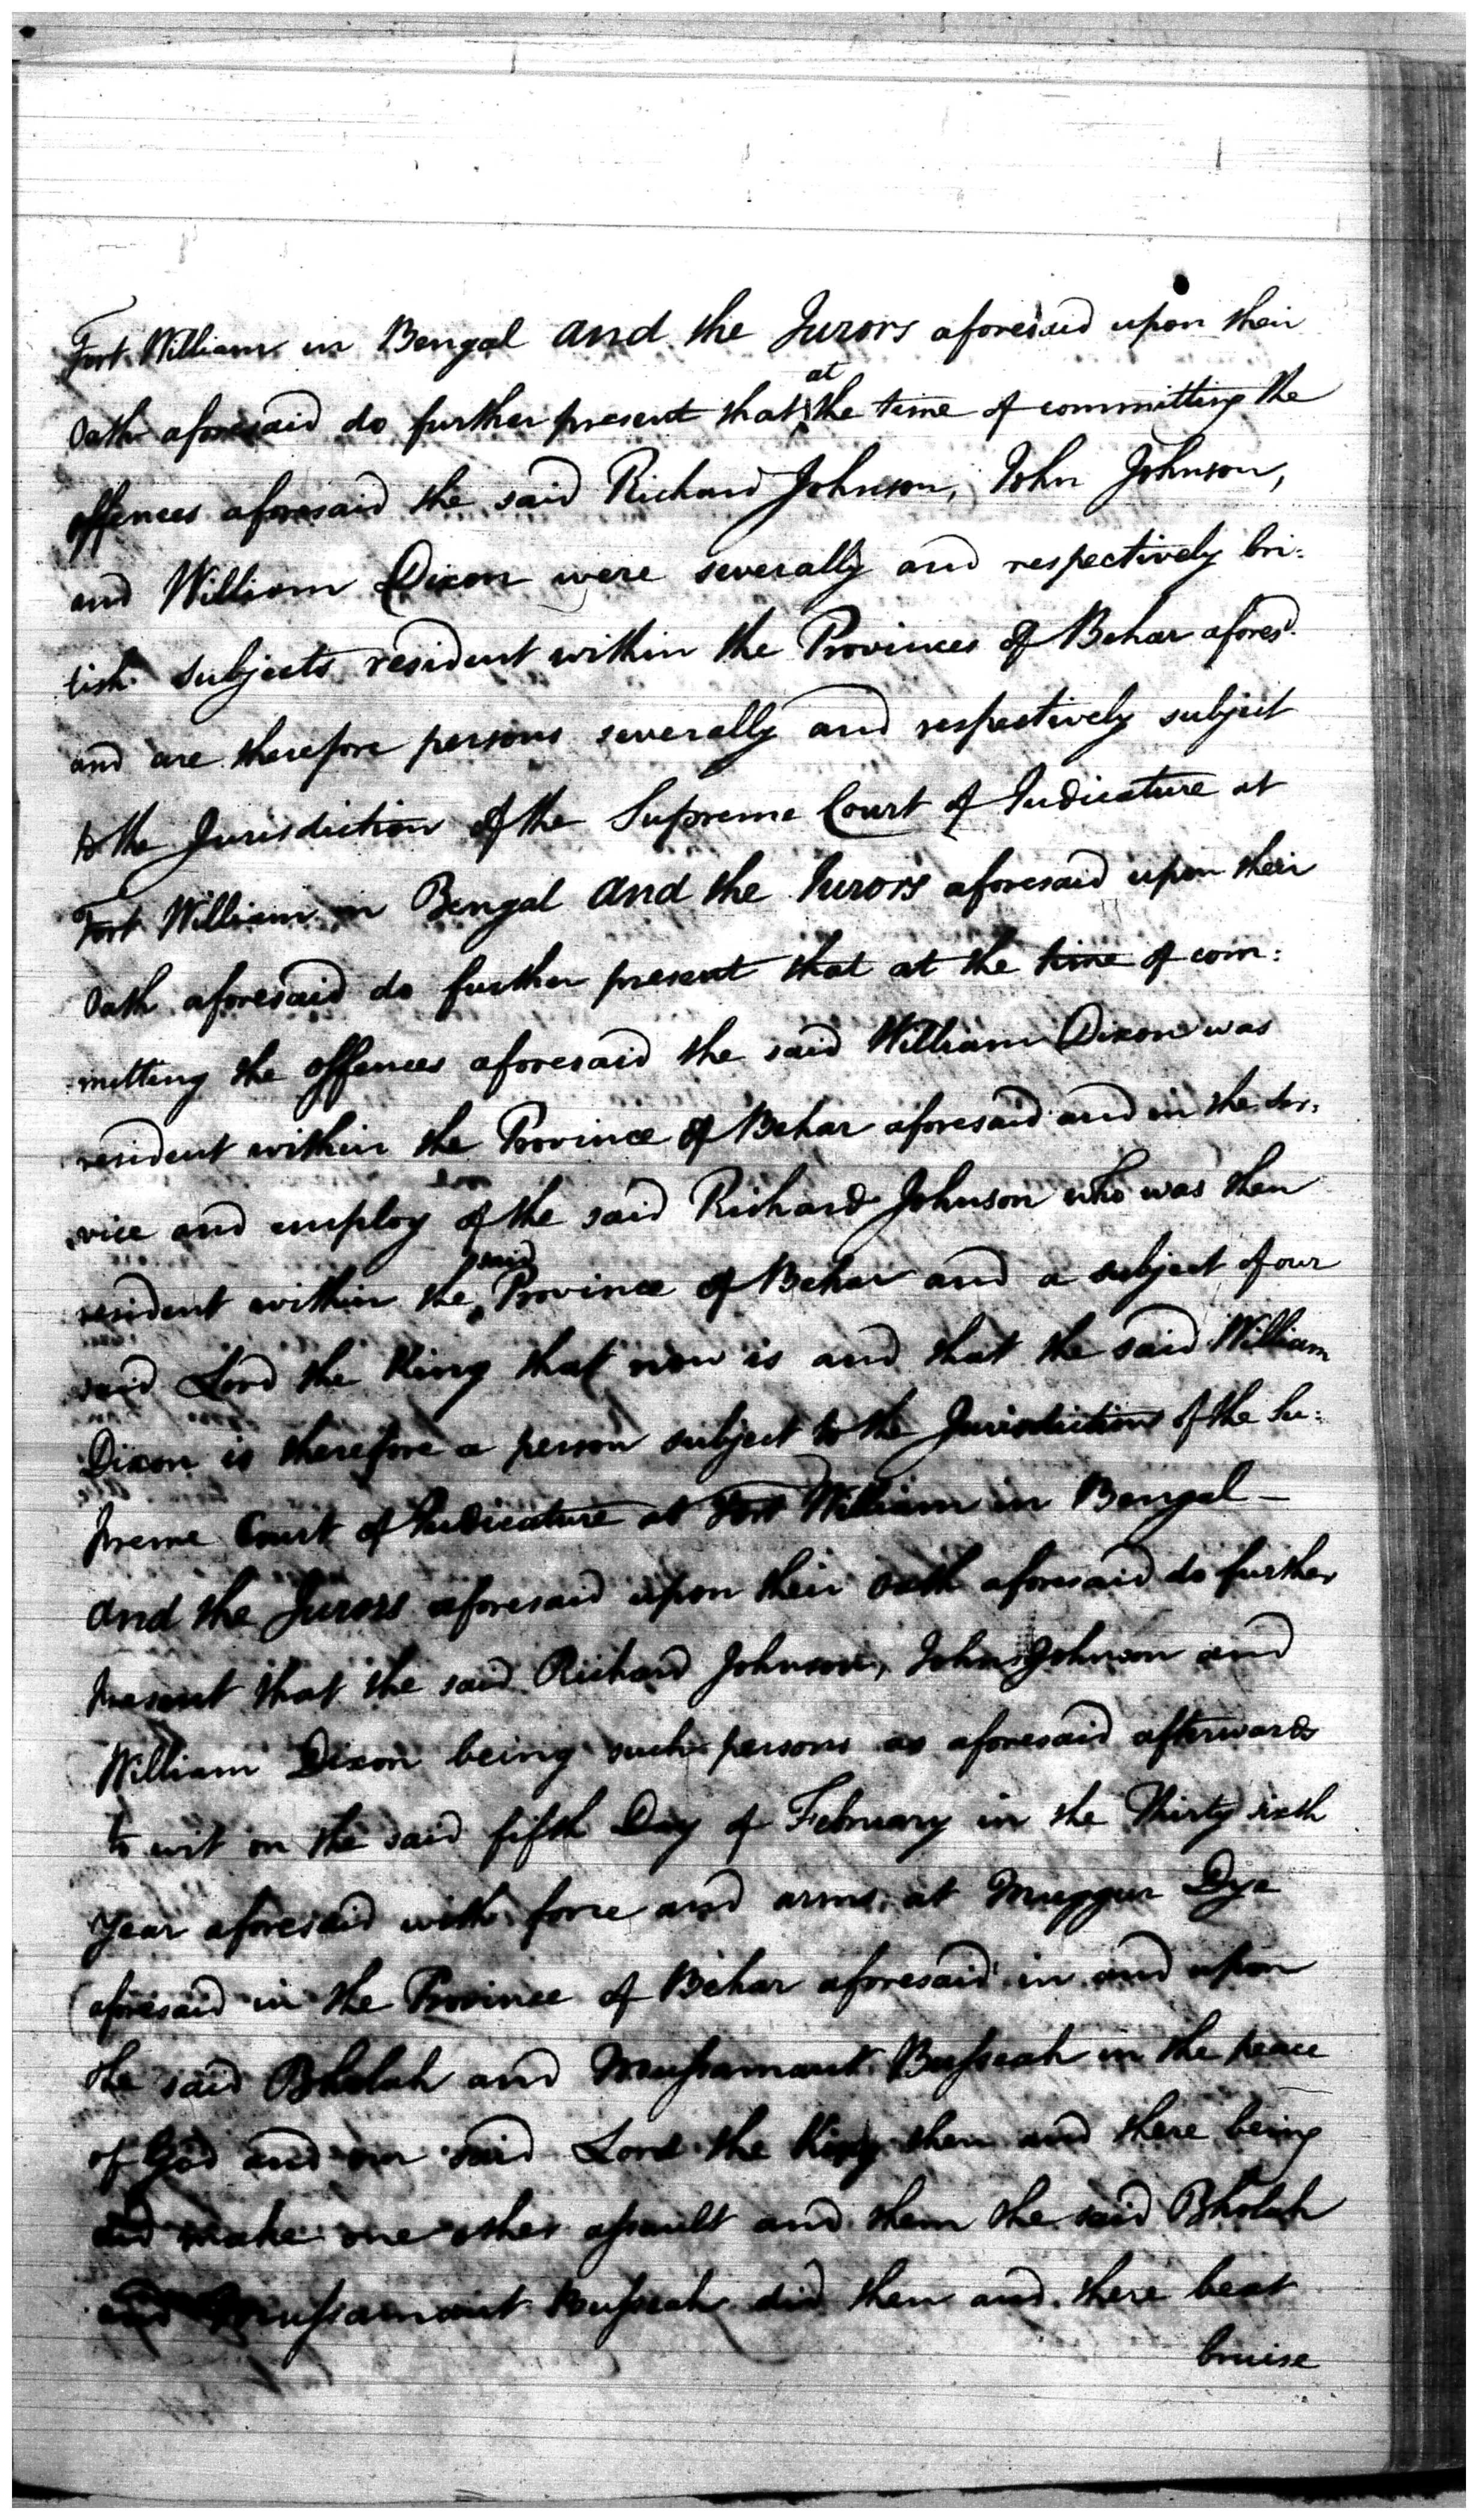 Fort William in Bengal and the Jurors aforesaid upon their
Oath aforesaid do further present that at the time of committing the
offences aforesaid the said Richard Johnson, John Johnson,
and William Dixon were severally and respectively bri:
tish subjects resident within the Provinces of Behar aforesd.
and are therefore persons severally and respectively subject
to the Jurisdiction of the Supreme Court of Judicature at
Fort William in Bengal and the Jurors aforesaid upon their
Oath aforesaid do further present that at the time of com:
:mitting the offences aforesaid the said William Dixon was
resident within the Province of Behar aforesaid and in the ser:
vice and employ of the said Richard Johnson who was then
resident within the said Province of Behar and a subject of our
said Lord the King that now is and that the said William
Dixon is therefore a person subject to the Jurisdiction of the Su:
preme Court of Judicature at Fort William in Bengal -
and the Jurors aforesaid upon their oath aforesaid do further
present that the said Richard Johnson, John Johnson and
William Dixon being such persons as aforesaid afterwards
to wit on the said fifth Day of February in the Thirty sixth
Year aforesaid with force and arms, at Muggur Dya
aforesaid in the Province of Behar aforesaid in and upon
the said Bholah and Mussamaut Busseah in the peace
of God and our said Lord the King then and there being
did make one other assault and them the said Bholah
and Mussamaut Busseah did then and there beat
bruise